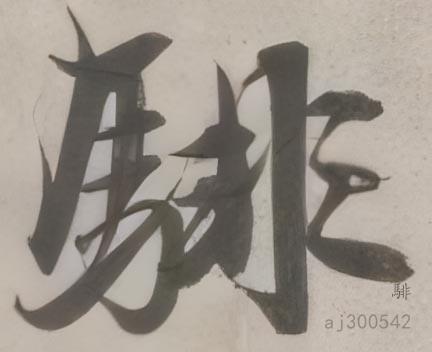 騑
騑
aj300542